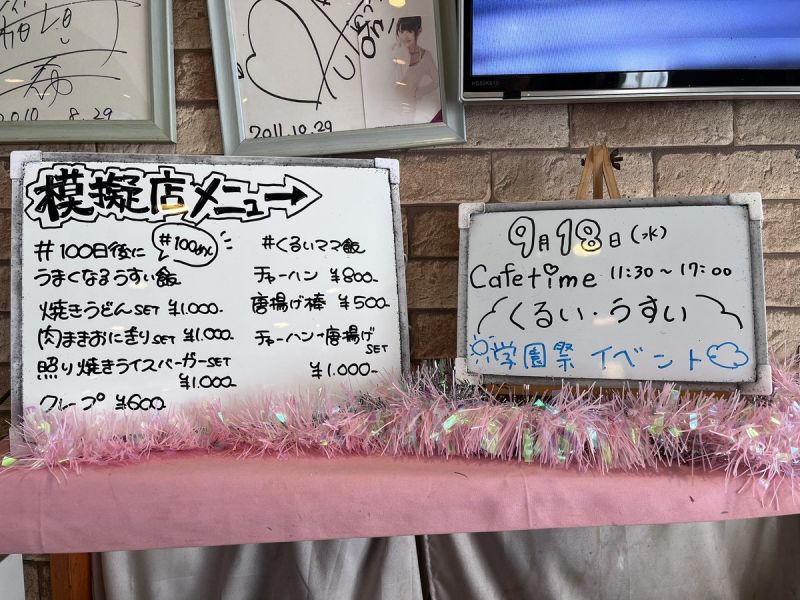 2010 8.29
2011.10.29
模擬店メニュー
#100日後に
#100めん
うまくなるうすい飯
焼きうどんSET ¥1.000-
肉まきおにぎりSET ¥1.000-
照り焼きライスバーガーSET
¥1.000-
クレープ ¥600-
#くるいママ飯
チャーハン ¥800-
唐揚げ棒 ¥500-
チャーハン唐揚げ
SET
¥1.000-
9月18日(水)
Cafetime 11:30~17:00
くるい・うすい
学園祭 イベント